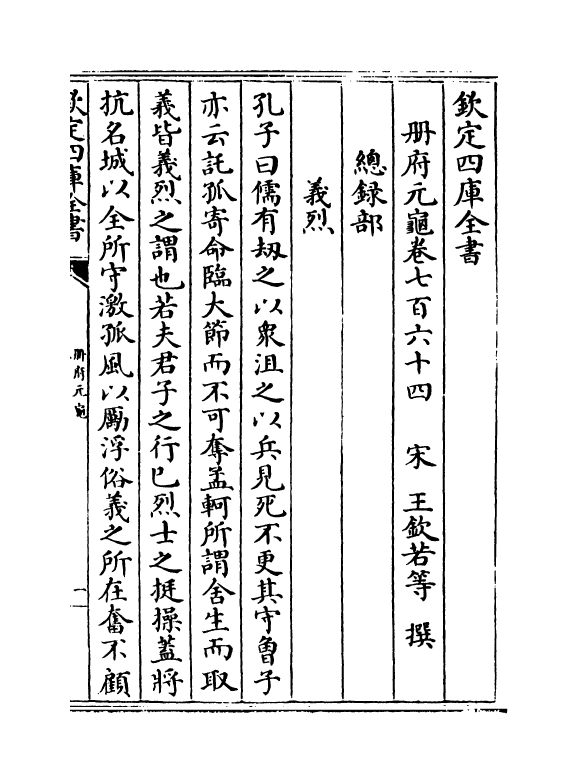 欽定四庫全書
册府元龜卷七百六十四　宋　王欽若等　撰
總録部
義烈
孔子曰儒有刼之以衆沮之以兵見死不更其守魯子
亦云託孤寄命臨大節而不可奪孟軻所謂舍生而取
義皆義烈之謂也若夫君子之行已烈士之挺操蓋將
抗名城以全所守激孤風以勵浮俗義之所在奮不顧
欽定四庫全書
册府元龜
一